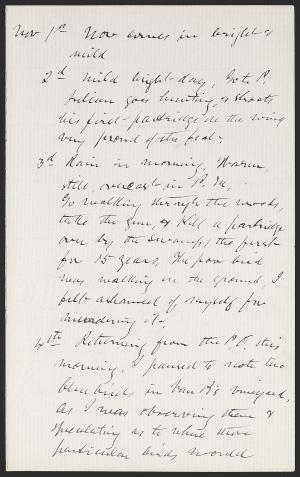 Nov 1st Nov comes in bright &
mild
2d mild bright day, Go to P.
Julian goes hunting, & shoots
his first partridge on the wing
very proud of the feat.
3d Rain in morning, Warm,
still, overcast in P. M.,
Go walking through the woods,
take the gun, & kill a partridge
over by the swamp, the first
for 15 years, The poor bird
was walking on the ground, I
felt ashamed of myself for
murdering it.
4th Returning from the P.O. this
morning, I paused to note two
blue birds in Van B's vineyard,
As I was observing them &
speculating as to where these
particular birds would